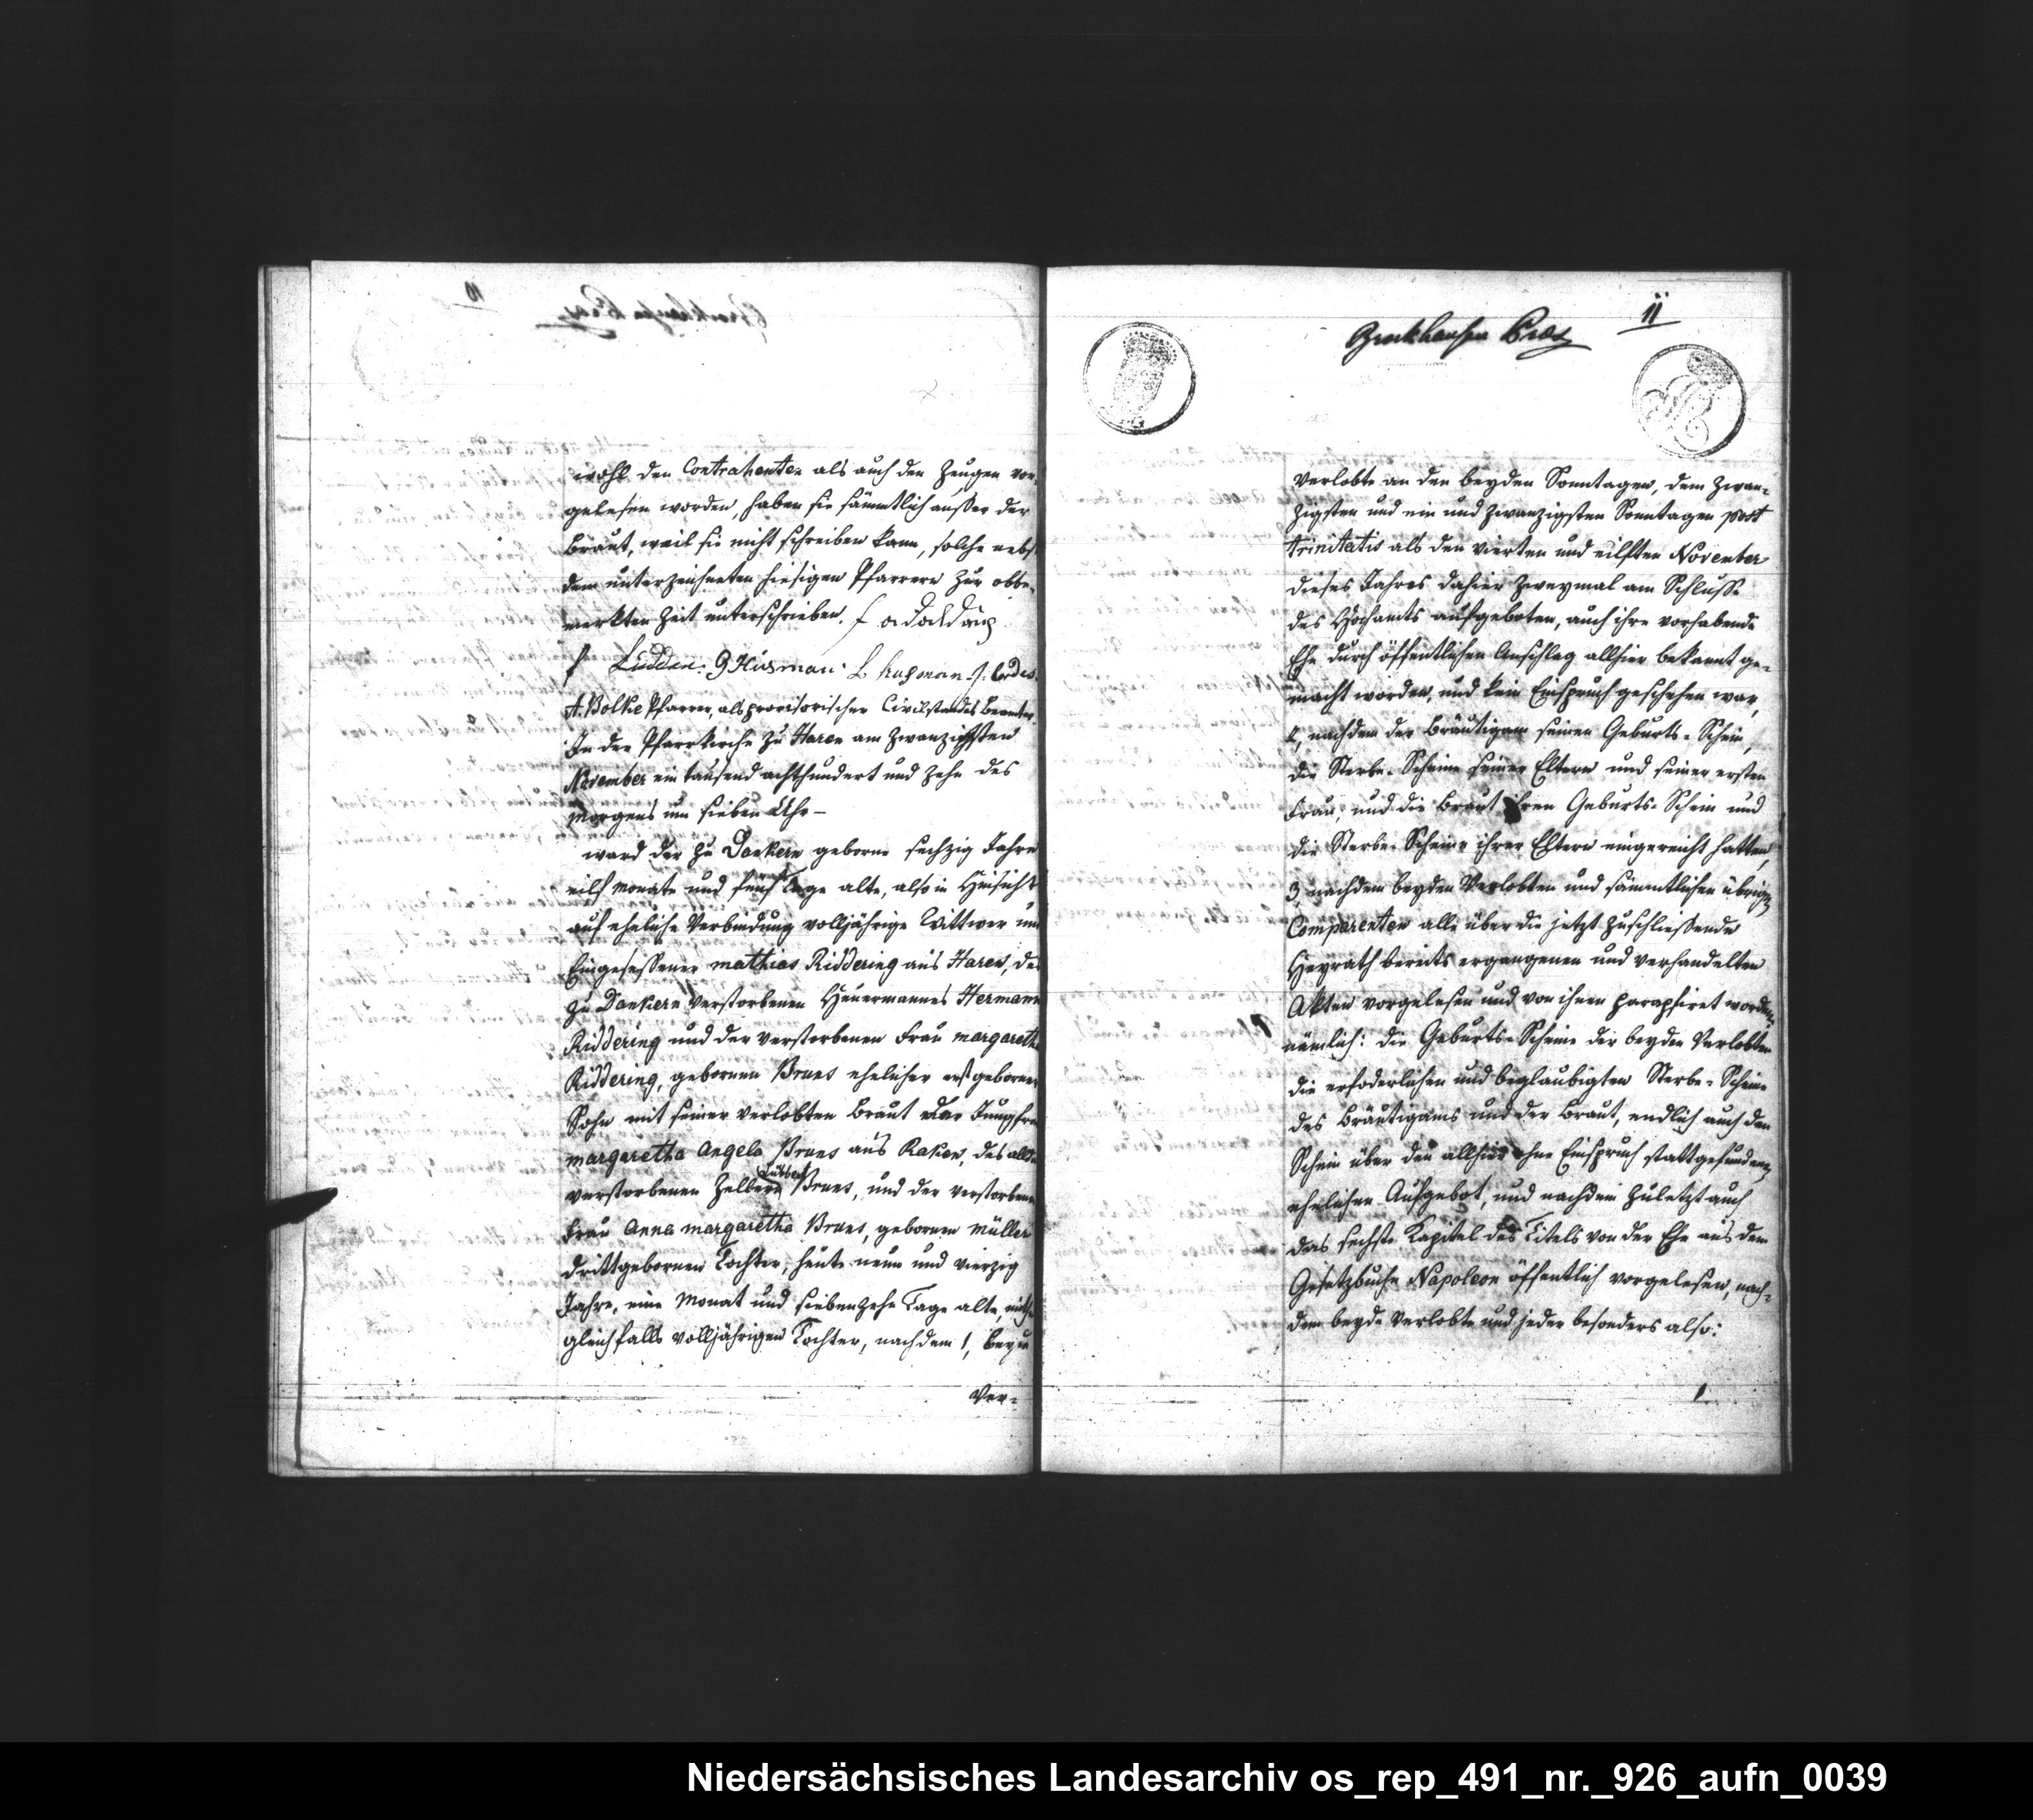 wohl den Contrahenten als auch den Zeugen vor-
gelesen worden, haben sie sämmtlich ausser der
Braut, weil sie nicht schreiben kann, solche nebst
dem unterzeichneten hiesigen Pfarrern zur obbe-
merkten Zeit unterschrieben.
Lüdden. G Husman. L
A. Bolke Pfarrer, als provisorischer Civilstandes Beamter.
In der Pfarrkirche zu Haren am zwanzigsten
November ein tausend achthundert und zehn des
Morgens um sieben Uhr –
ward der zu Dankern geborne sechzig Jahre
eilf Monate und fünf Tage alte, also in Hinsicht
auf eheliche Verbindung volljährige Wittwer und
Eingesessener Mathias Riddering aus Haren, des
zu Dankern verstorbenen Heuermannes Hermann
Riddering und der verstorbenen Frau Margaretha
Riddering, gebornen Bruns ehelicher erstgeborner
Sohn mit seiner verlobten Braut der Jungfrau
Margaretha Angela Bruns aus Raken, des allda
verstorbenen Zellers Lübbert Bruns, und der verstorbenen
Frau Anna Margaretha Bruns, gebornen Müller
drittgebornen Tochter, heute neun und vierzig
Jahre, eine Monat und siebenzehn Tage alte,
gleichfalls volljährigen Tochter, nachdem 1, beyde
Ver-
11
Brockhausen Præs
Verlobte an den beyden Sonntagen, dem zwan-
zigsten und ein und zwanzigsten Sonntagen post
trinitatis als den vierten und eilften November
dieses Jahres dahier zweymal am Schlusse
des Hochamts aufgeboten, auch ihre vorhabende
Ehe durch öffentlichen Anschlag allhier bekannt ge-
macht worden, und kein Einspruch geschehen war,
2, nachdem der Bräutigam seinen Geburts-Schein,
die Sterbe-Scheine seiner Eltern und seiner ersten
Frau, und die Braut ihren Geburts-Schein und
die Sterbe-Scheine ihrer Eltern eingereicht hatten,
3, nachdem beyden Verlobten und sämmtlichen übrigen
Comparenten alle über die jetzt zuschließende
Heyrath bereits ergangenen und verhandelten
Akten vorgelesen und von ihnen paraphiret worden,
nämlich: die Geburts-Scheine der beyden Verlobten
die erfoderlichen und beglaubigten Sterbe-Scheine
des Bräutigams und der Braut, endlich auch den
Schein über den allhier ohne Einspruch stattgefundenen
ehelichen Aufgebot, und nachdem zuletzt auch
das sechste Kapitel des Titels von der Ehe aus dem
Gesetzbuche Napoleon öffentlich vorgelesen, nach-
dem beyde Verlobte und jeder besonders also:
1.
Niedersächsisches Landesarchiv os_rep_491_nr._926_aufn_0039